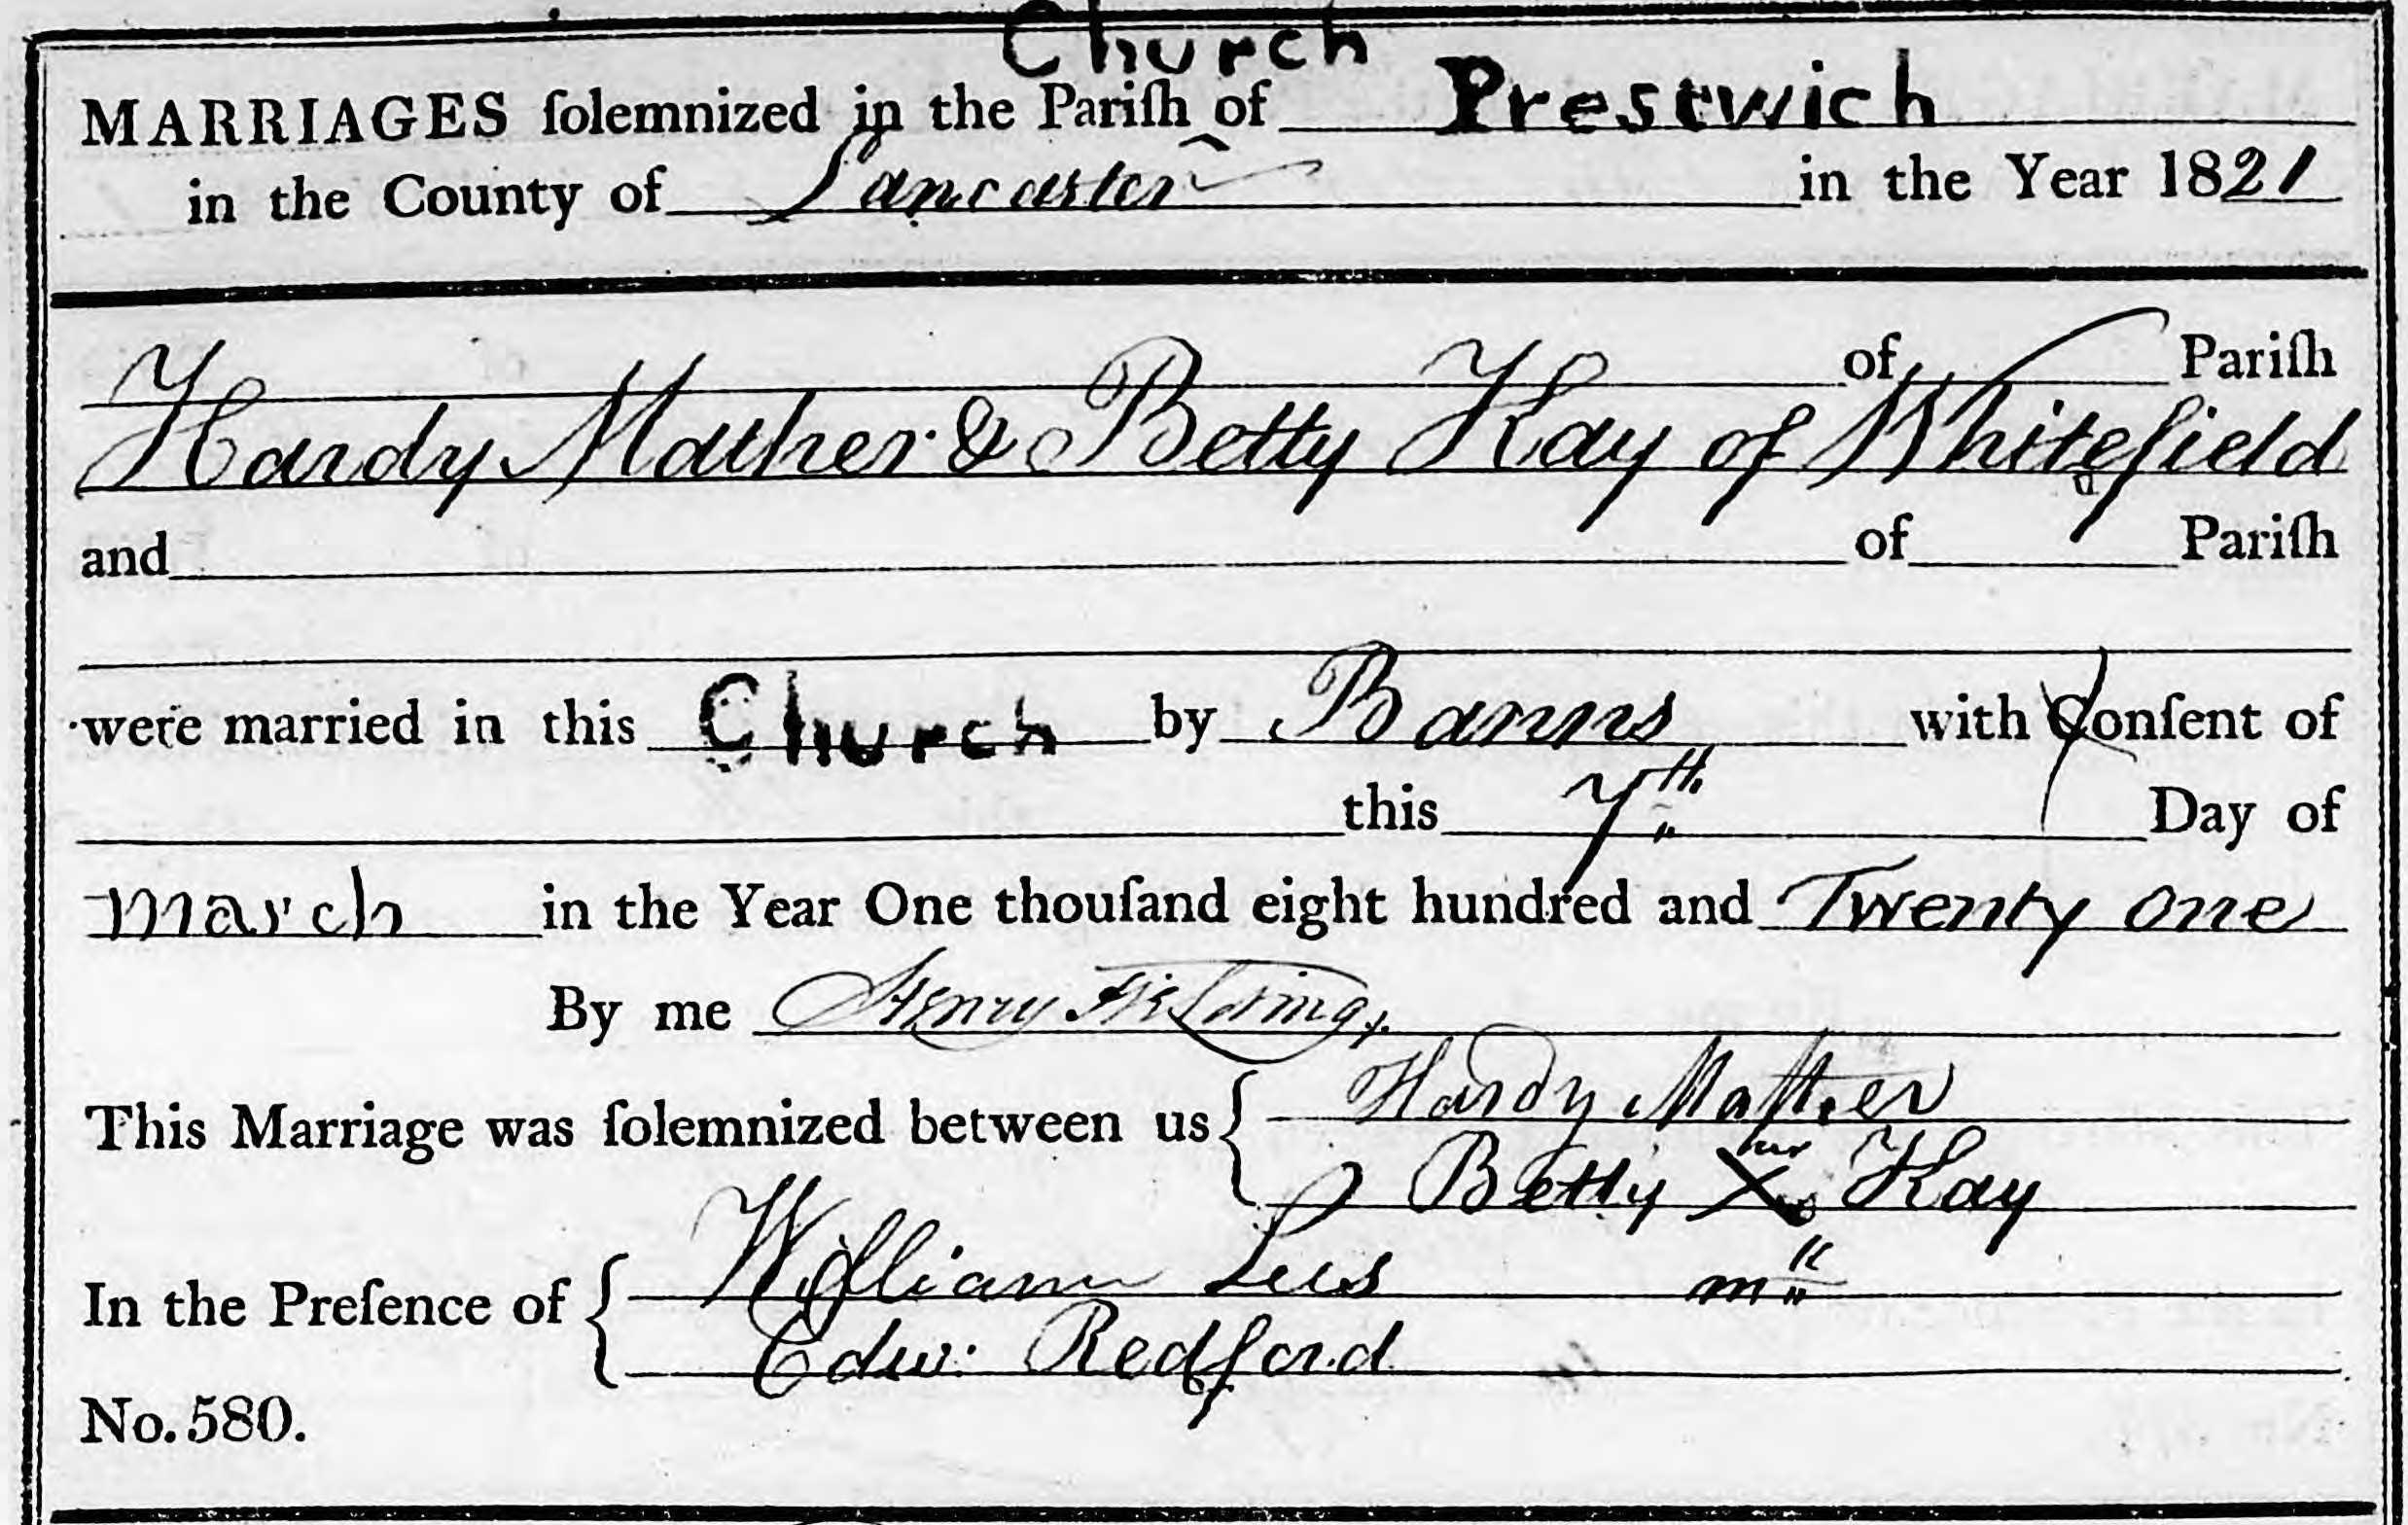 Church
MARRIAGES ſolemnized in the Pariſh ‸ of Prestwich
in the County of Lancaster in the Year 1821
of Pariſh
Hardy Mather & Betty Kay of Whitefield
and of Pariſh
were married in this Church by Banns with Conſent of
this 7th Day of
March in the Year One thouſand eight hundred and Twenty one
By me Henry Fielding
This Marriage was ſolemnized between us { Hardy Mather
her
Betty X Kay
mk
In the Preſence of { William Lees
Edw: Redford
No. 580.